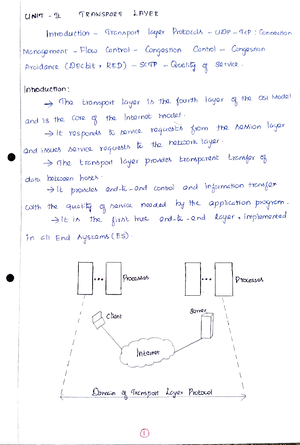 UNIT - II TRANSPORT LAYER
Introduction - Transport Layer Protocols - UDP - TCP : Connection
Management - Flow Control - Congestion Control - Congestion
Avoidance (DECbit, RED) - SCTP - Quality of Service.
Introduction:
→ The transport layer is the fourth layer of the OSI Model
and is the core of the Internet model.
→ It responds to service requests from the session layer
and issues service requests to the network layer.
→ The transport layer provides transparent transfer of
data between hosts.
→ It provides end-to-end control and information transfer
with the quality of service needed by the application program.
→ It is the first true end-to-end layer, implemented
in all End Systems (ES).
Processes Processes
Client Server
Internet
Domain of Transport Layer Protocol
1